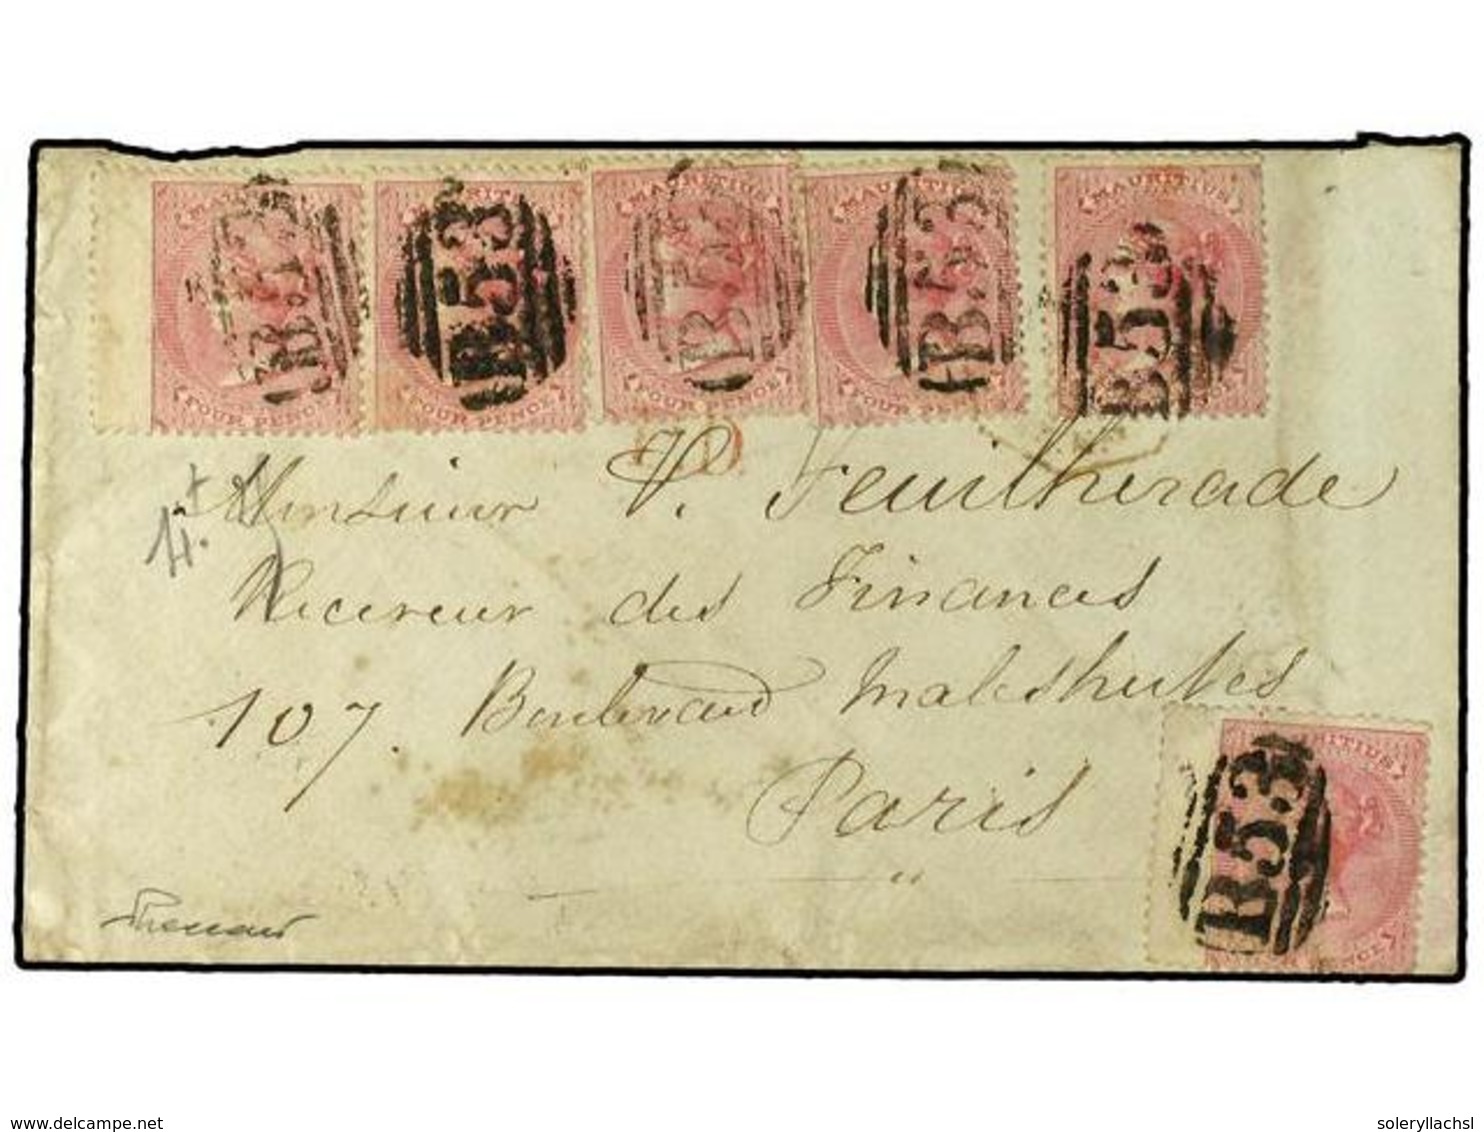 MAURITIUS MAURITIUS MAURITIUS MAURITIUS MAURITIUS
B.53 B53 B53 B.53 B53
FOUR PENCE FOUR PENCE FOUR PENCE FOUR PENCE
Monsieur V. Feuilherade
Receveur des Finances
107. Boulevard Malesherbes
Paris
MAURITIUS
B53
delcampe.net
soleryllachsl